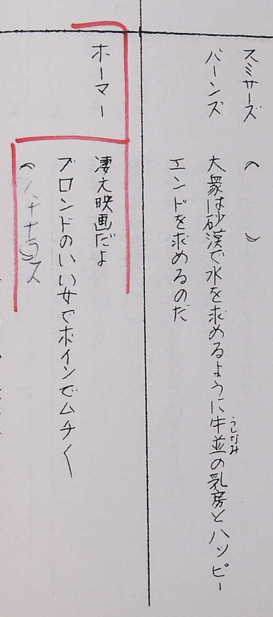 スミザーズ （　　）
バーンズ 大衆は砂漠で水を求めるように牛並の乳房とハッピー
うしなみ
エンドを求めるのだ
ホーマー 凄え映画だよ
ブロンドのいい女でボインでムチ〱